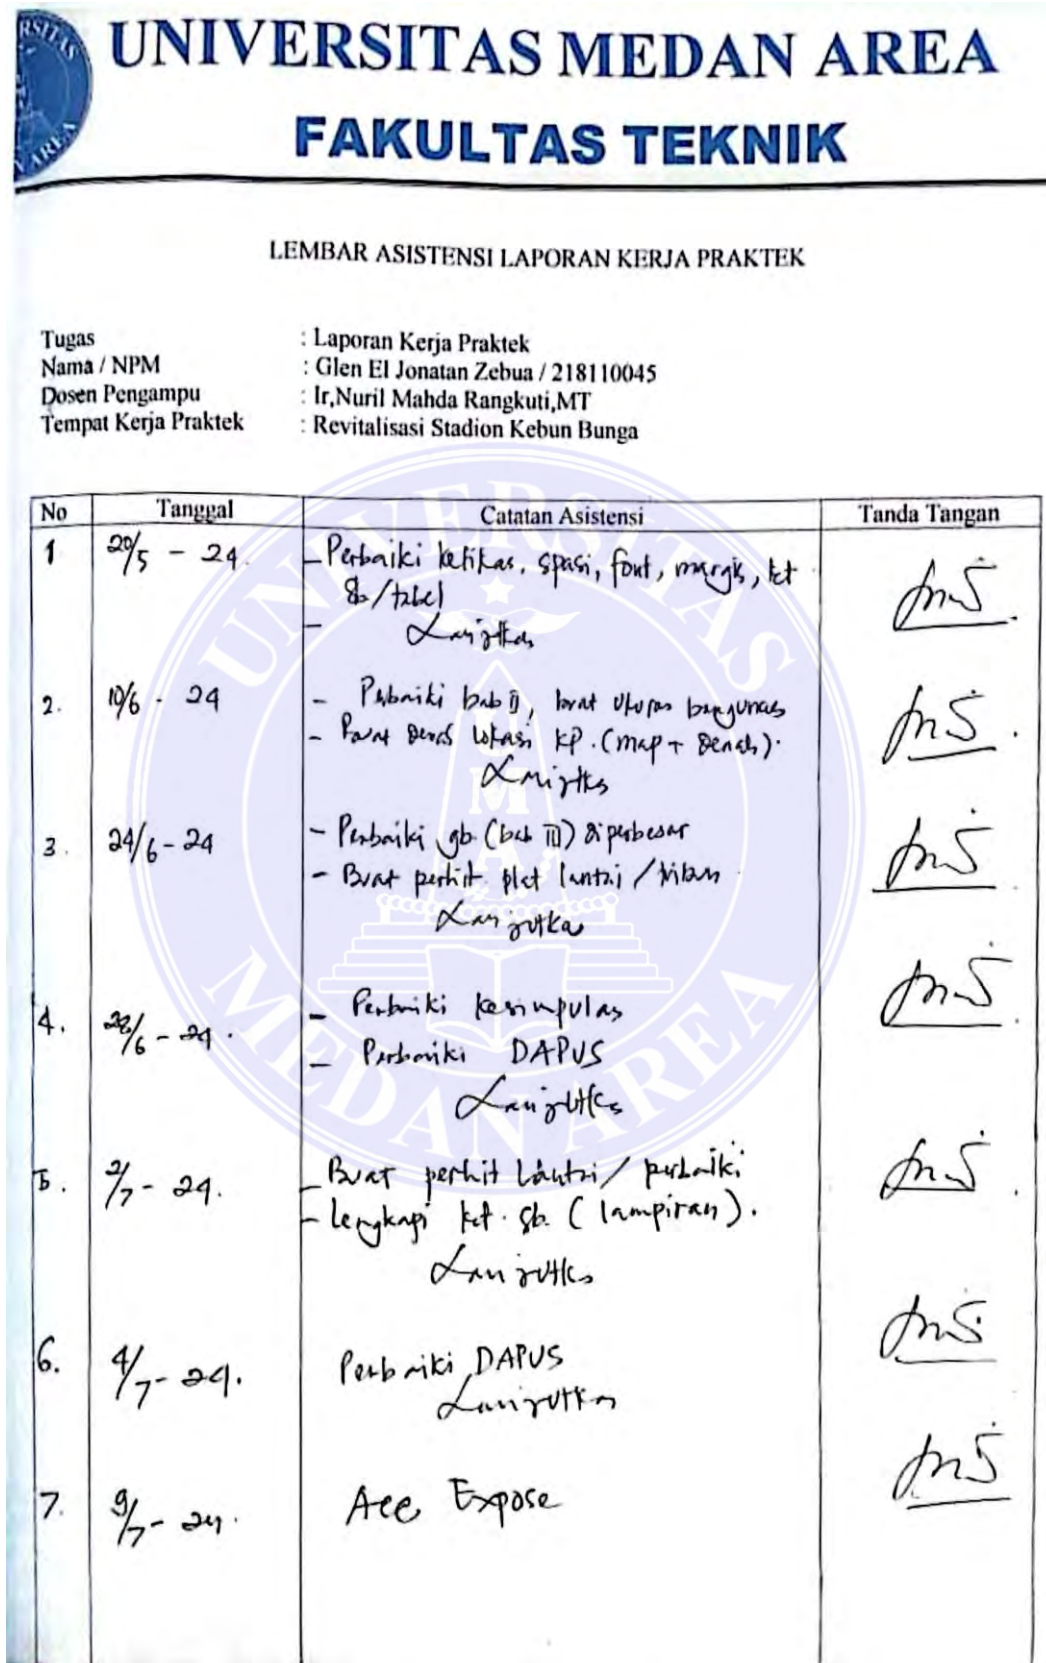 UNIVERSITAS MEDAN AREA
FAKULTAS TEKNIK
LEMBAR ASISTENSI LAPORAN KERJA PRAKTEK
Tugas : Laporan Kerja Praktek
Nama / NPM : Glen El Jonatan Zebua / 218110045
Dosen Pengampu : Ir,Nuril Mahda Rangkuti,MT
Tempat Kerja Praktek : Revitalisasi Stadion Kebun Bunga
No Tanggal Catatan Asistensi Tanda Tangan
1 20/5 - 24. - Perbaiki ketikan, spasi, font, margin, ket
gb/tabel
- Lanjutkan
2. 10/6 - 24 - Perbaiki bab II, buat ukuran bangunan
- Buat Denah lokasi KP. (map + Denah).
Lanjutkan
3. 24/6 - 24 - Perbaiki gb. (bab III) diperbesar
- Buat perhit. plat lantai /
Lanjutkan
4. 28/6 - 24. - Perbaiki kesimpulan
- Perbaiki DAPUS
Lanjutkan
5. 2/7 - 24. - Buat perhit lantai / perbaiki
- Lengkapi ket. gb. (lampiran).
Lanjutkan
6. 4/7 - 24. Perbaiki DAPUS
Lanjutkan
7. 9/7 - 24. Acc Expose
UNIVERSITAS
MEDAN AREA
UMA